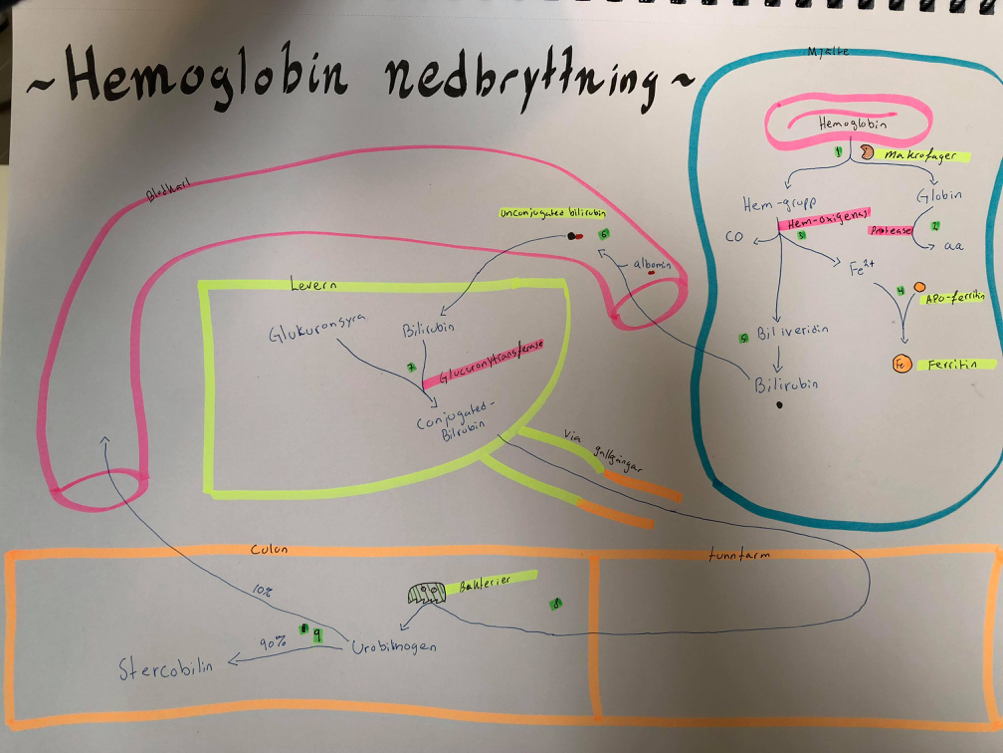 ~Hemoglobin nedbryttning~
Mjälte
Hemoglobin
1
Makrofager
Hem-grupp
Globin
Hem-oxigenas
3
Protease
2
CO
aa
Fe2+
4
APO-ferritin
5
Biliveridin
Fe
Ferritin
Bilirubin
Blodkärl
Unconjugated bilirubin
6
albumin
Levern
Glukuronsyra
Bilirubin
7
Glucuronytransferase
Conjugated-
Bilrubin
Via
gallgångar
Colon
tunntarm
Bakterier
8
10%
9
90%
Urobilinogen
Stercobilin